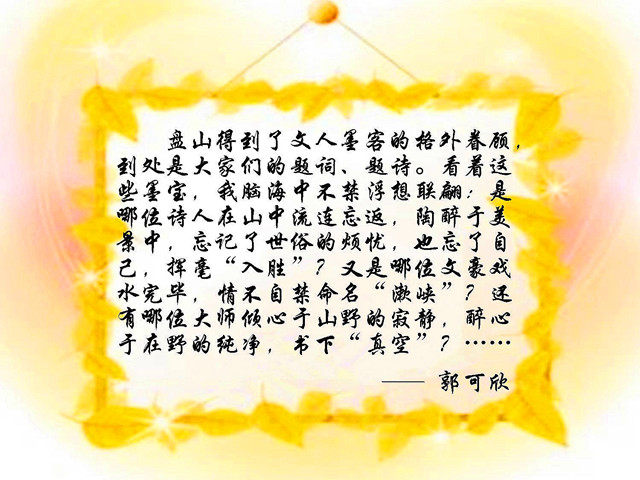 盘山得到了文人墨客的格外眷顾，
到处是大家们的题词、题诗。看着这
些墨宝，我脑海中不禁浮想联翩：是
哪位诗人在山中流连忘返，陶醉于美
景中，忘记了世俗的烦忧，也忘了自
己，挥毫“入胜”？又是哪位文豪戏
水完毕，情不自禁命名“漱峡”？还
有哪位大师倾心于山野的寂静，醉心
于在野的纯净，书下“真空”？……
—— 郭可欣